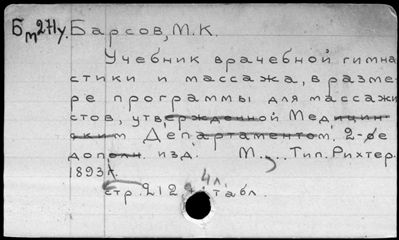 Бм 271у. Барсов, М. К.
Учебник врачебной гимна
стики и массажа, в разме-
ре программы для массажи
стов, утвержденной Медицин
ским Департаментом, 2-ое
дополн. изд. М., Тип. Рихтер.
1893
4 л.
стр. 212 табл.